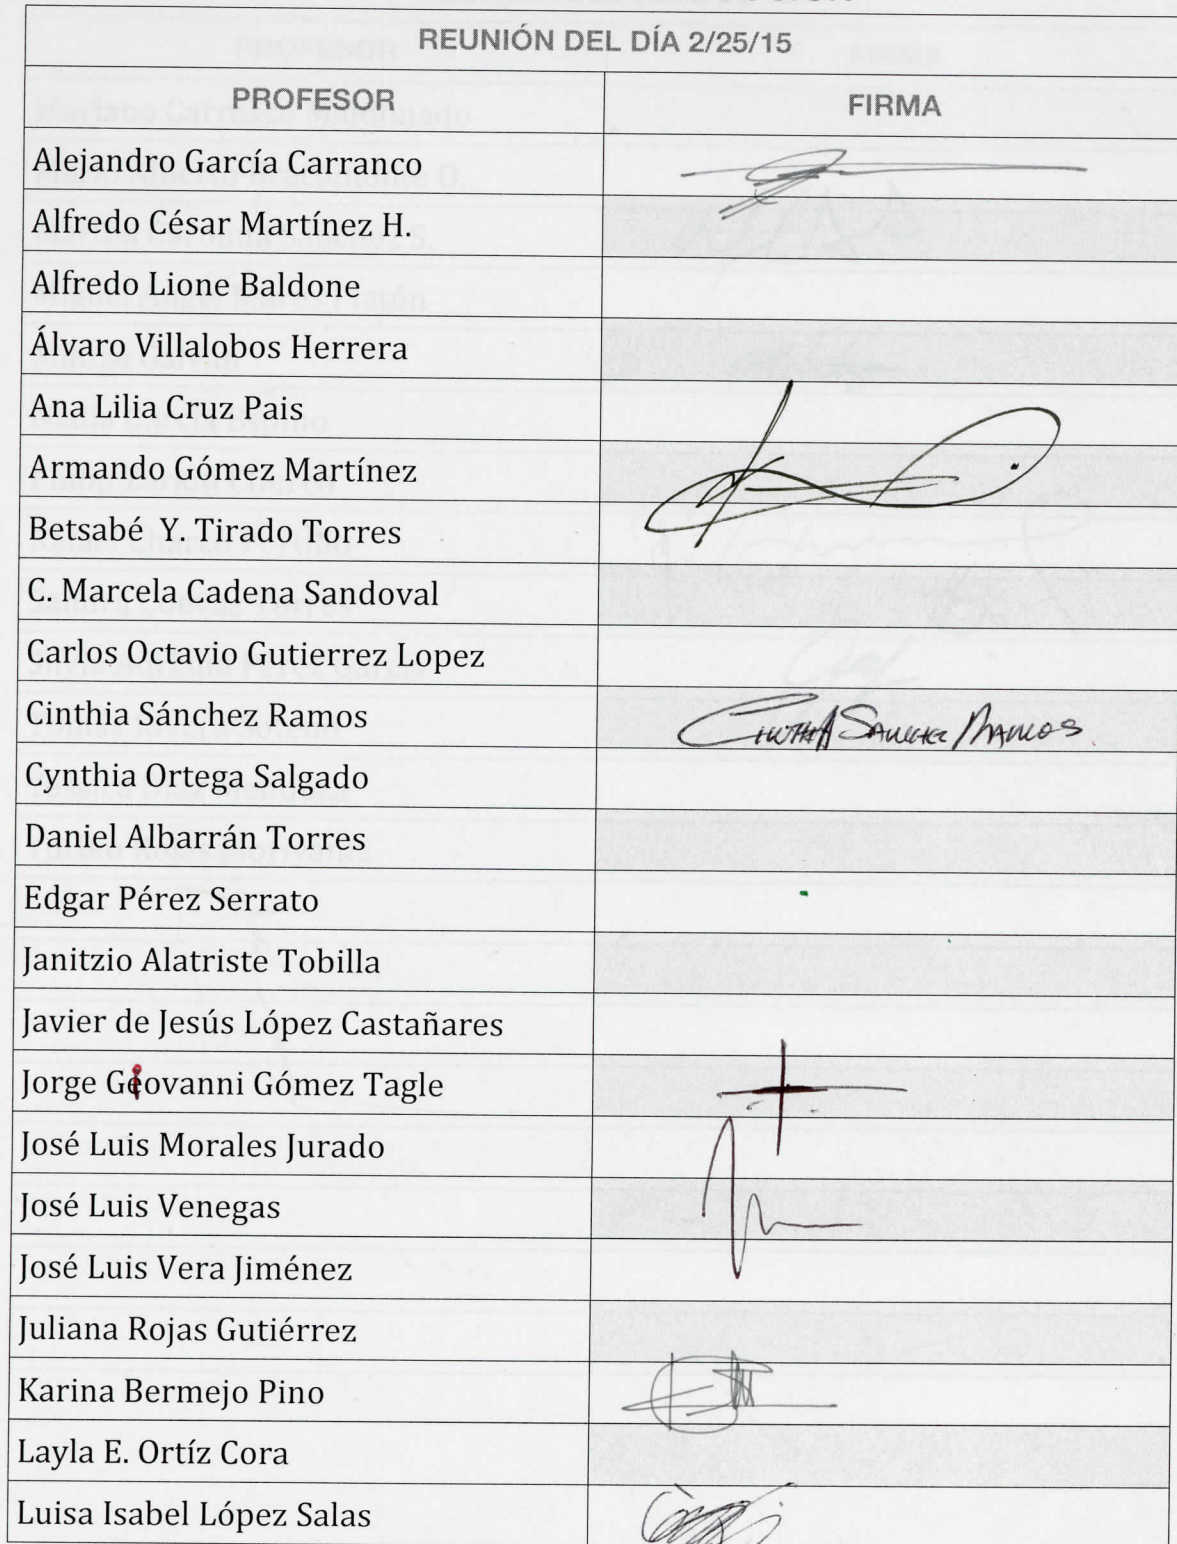 REUNIÓN DEL DÍA 2/25/15
PROFESOR FIRMA
Alejandro García Carranco
Alfredo César Martínez H.
Alfredo Lione Baldone
Álvaro Villalobos Herrera
Ana Lilia Cruz Pais
Armando Gómez Martínez
Betsabé Y. Tirado Torres
C. Marcela Cadena Sandoval
Carlos Octavio Gutierrez Lopez
Cinthia Sánchez Ramos Cinthia Sanchez Ramos
Cynthia Ortega Salgado
Daniel Albarrán Torres
Edgar Pérez Serrato
Janitzio Alatriste Tobilla
Javier de Jesús López Castañares
Jorge Giovanni Gómez Tagle
José Luis Morales Jurado
José Luis Venegas
José Luis Vera Jiménez
Juliana Rojas Gutiérrez
Karina Bermejo Pino
Layla E. Ortíz Cora
Luisa Isabel López Salas